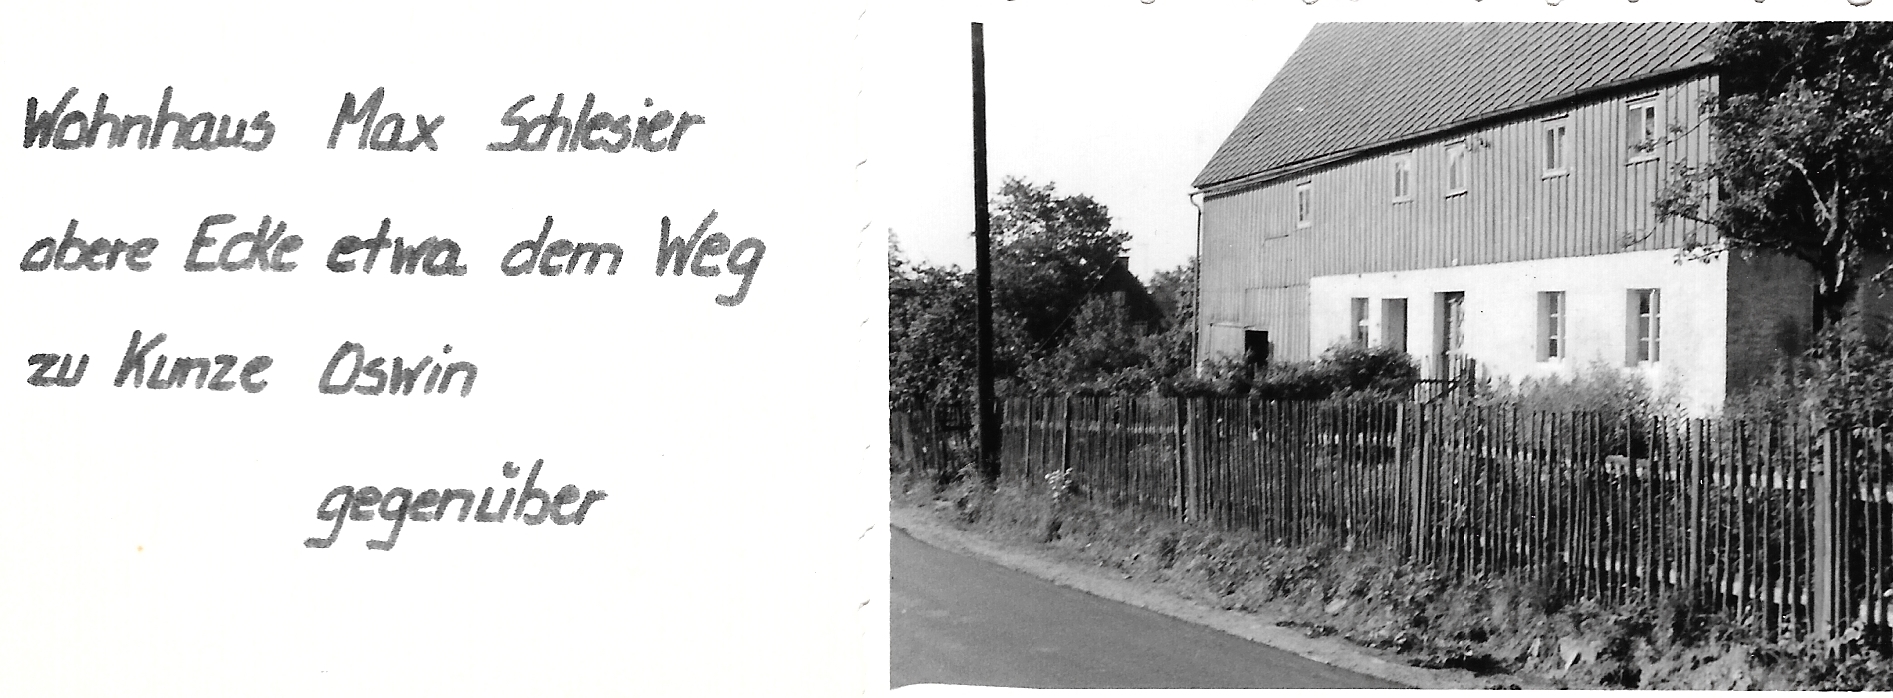 Wohnhaus Max Schlesier
obere Ecke etwa dem Weg
zu Kunze Oswin
gegenüber